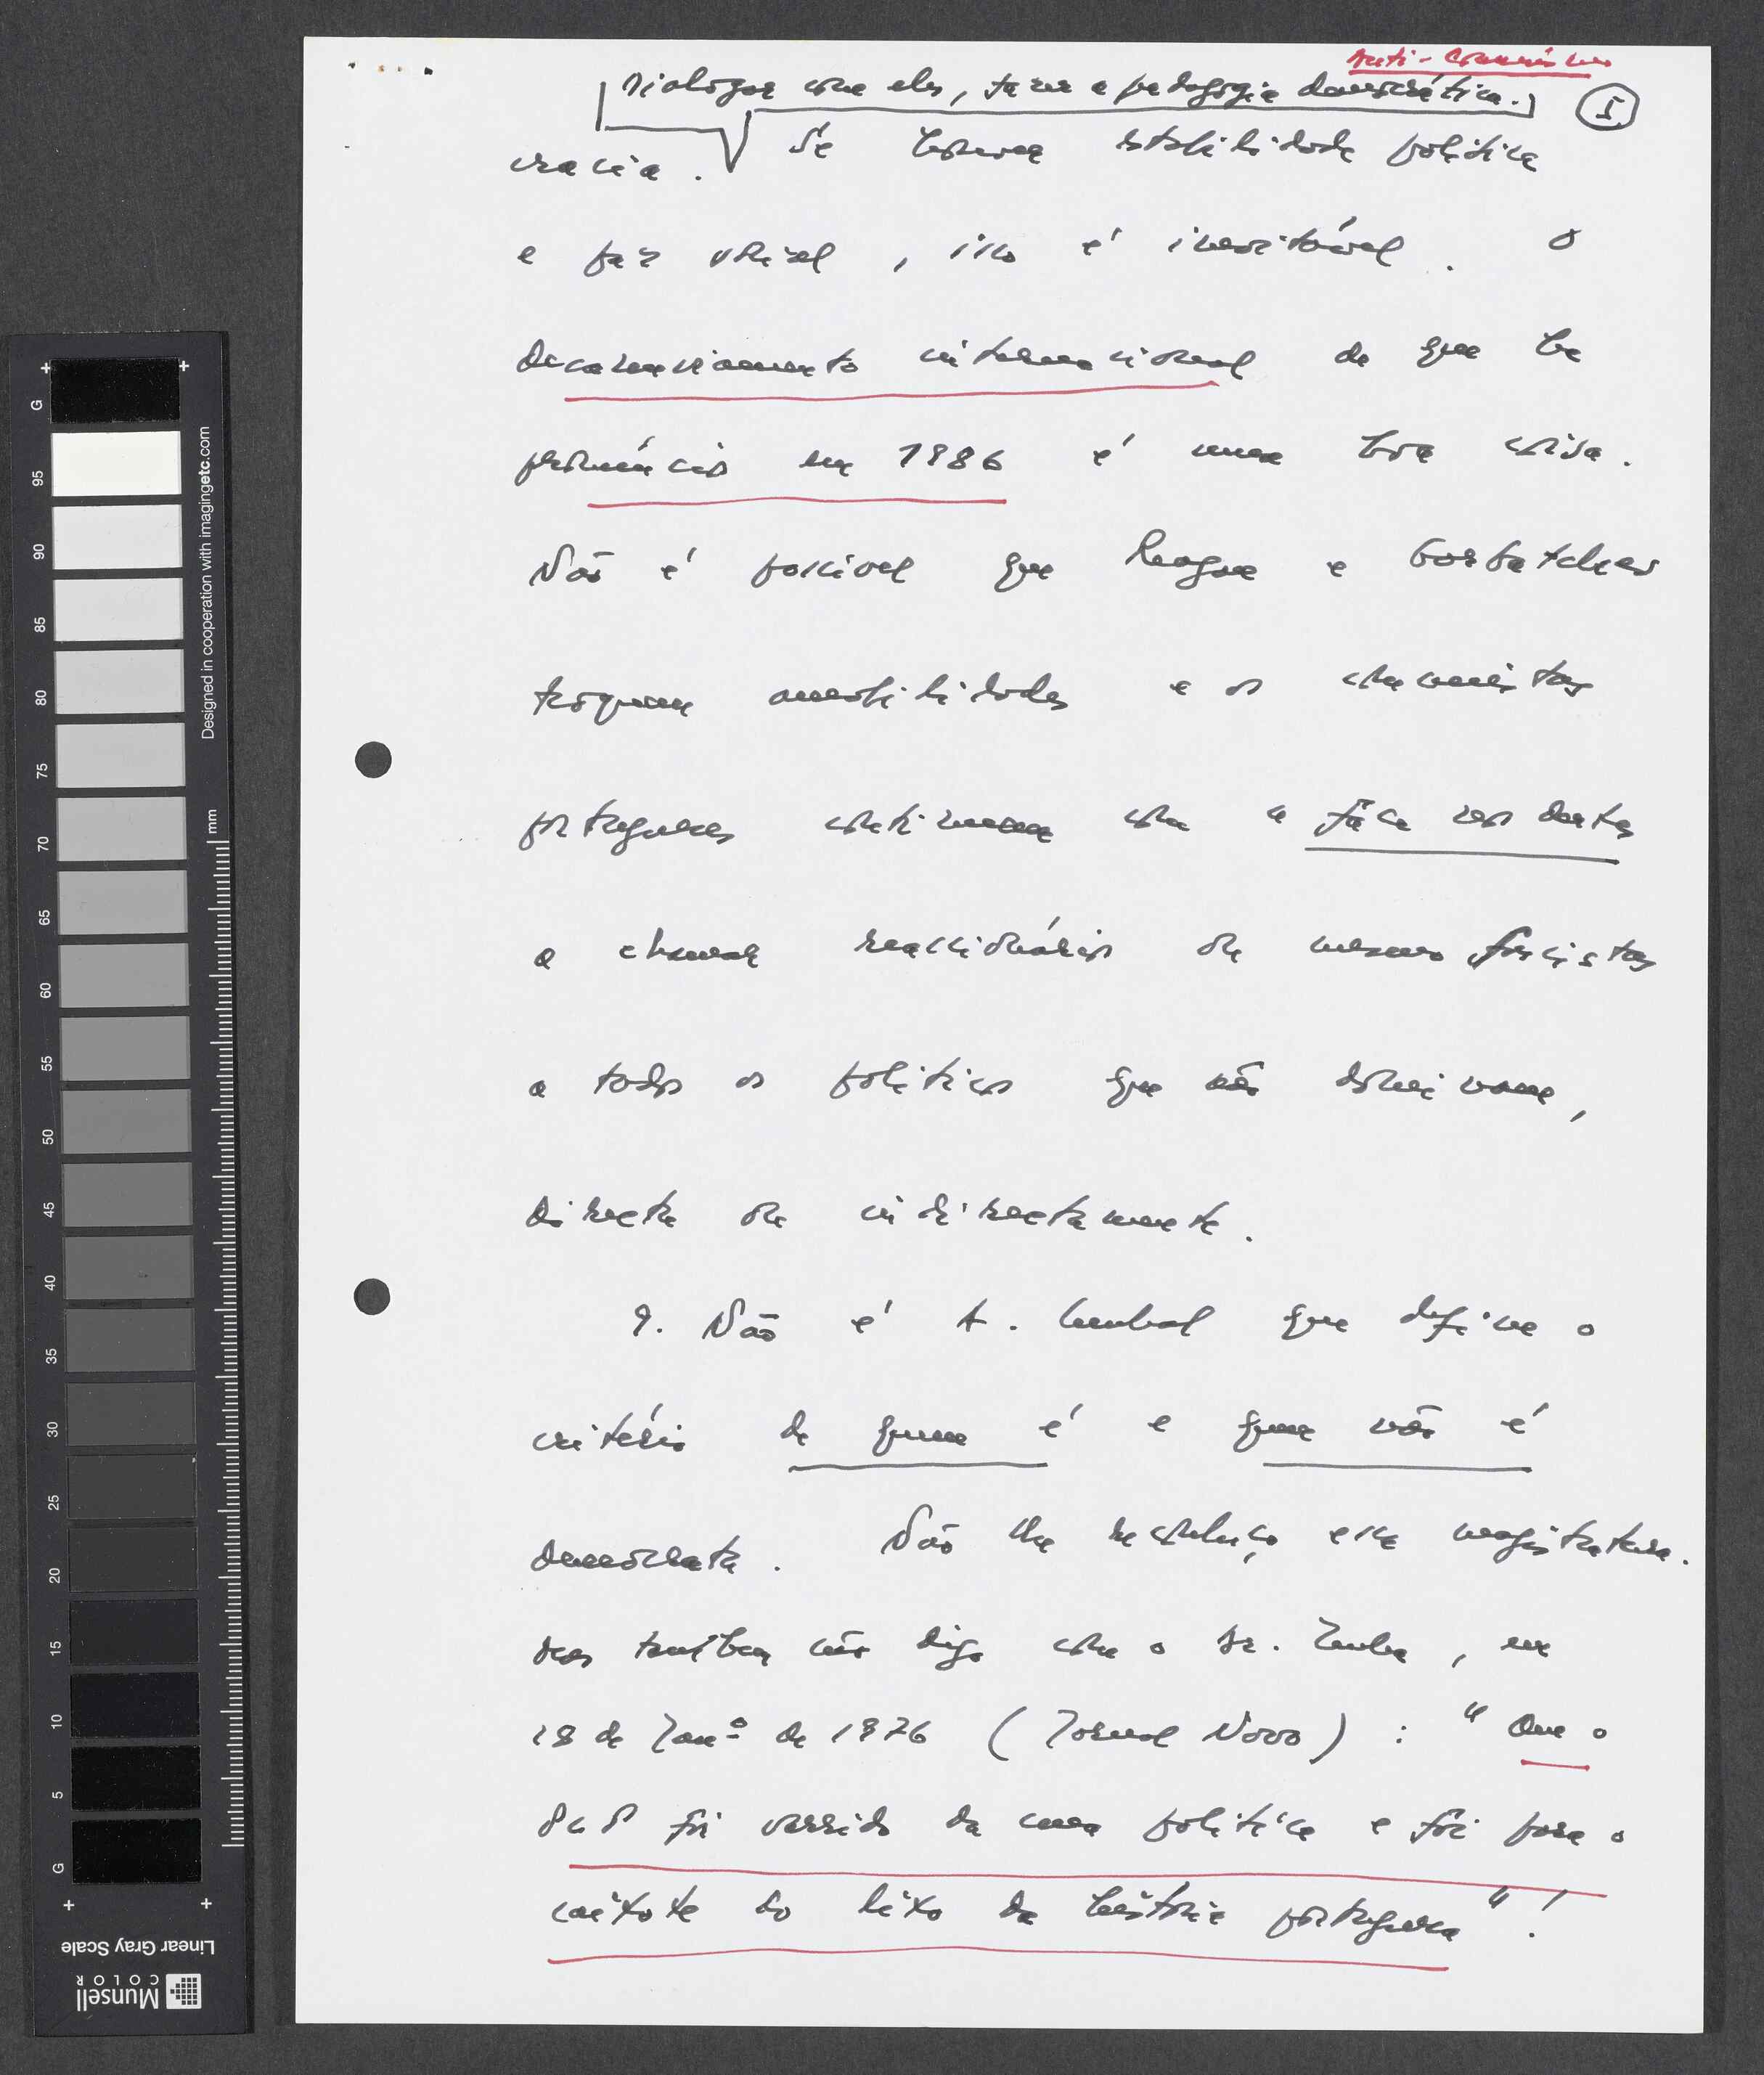 Anti-Comunismo
Dialogar com eles, fazer a pedagogia democrática.
5
cracia. Se houver estabilidade política
e paz social, isso é inevitável. O
desanuviamento internacional de que há
prenúncios em 1986 é uma boa coisa.
Não é possível que Reagan e Gorbatchev
troquem amabilidades e os comunistas
portugueses continuem com a faca nos dentes
a chamar reaccionários ou mesmo fascistas
a todos os políticos que não dominam,
directa ou indirectamente.
9. Não é A. Cunhal que define o
critério de quem é e quem não é
democrata. Não lhe reconheço essa magistratura.
Mas também não digo como o Dr. Zenha, em
28 de Janº de 1976 (Jornal Novo): "Que o
PCP foi varrido da cena política e foi para o
caixote do lixo da história portuguesa"!
G
95
90
85
80
75
70
65
60
55
50
45
40
35
30
25
20
15
10
5
G
mm
Designed in cooperation with imagingetc.com
Linear Gray Scale
Munsell
COLOR